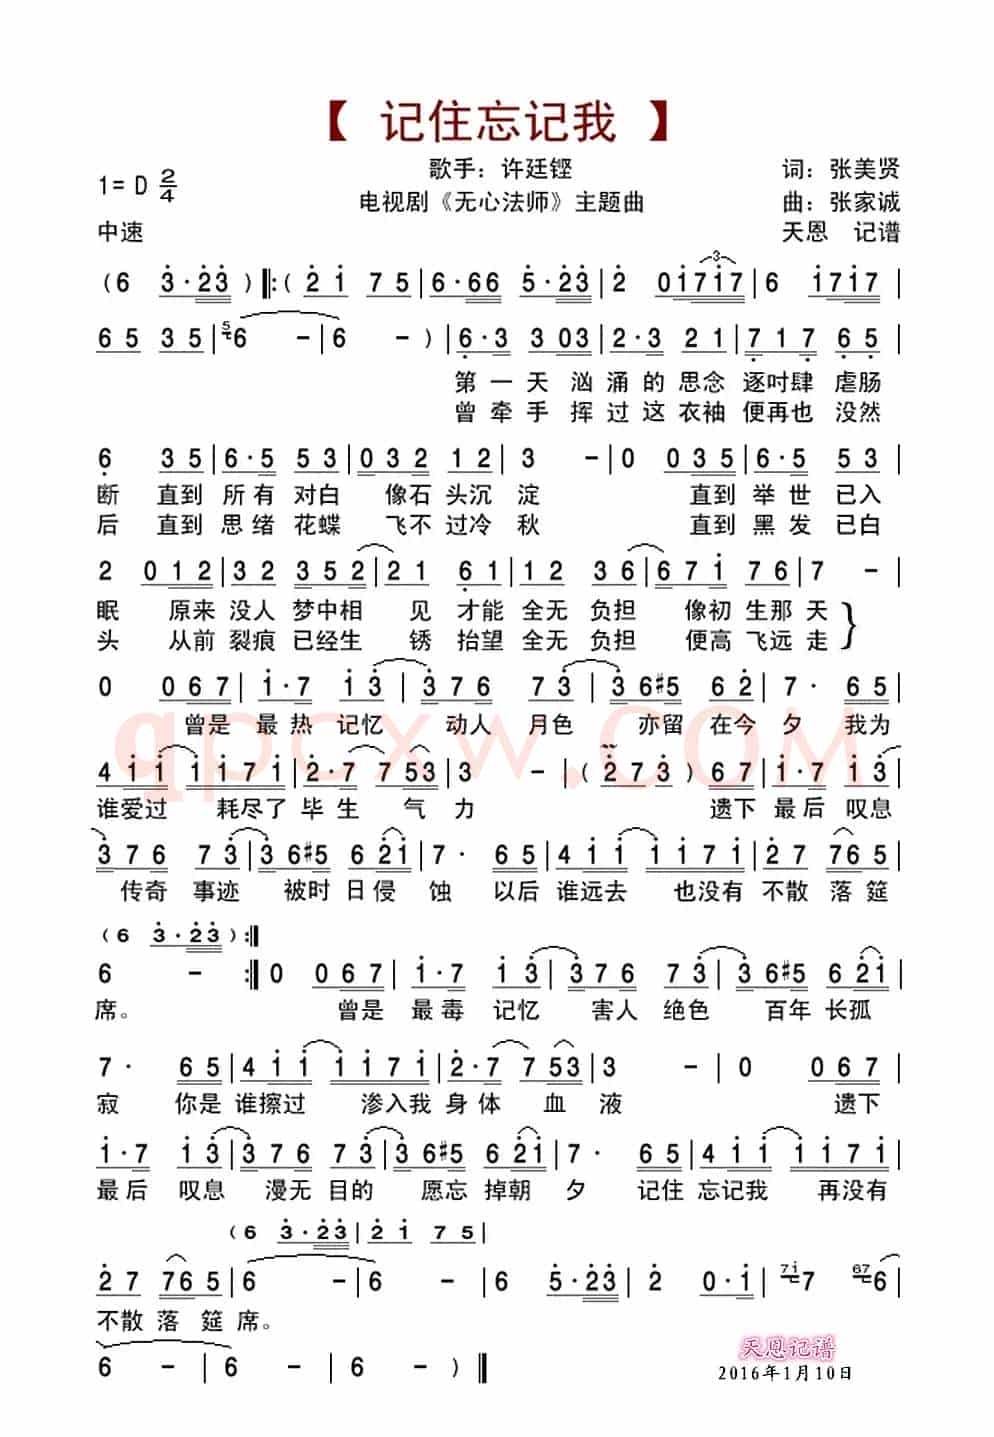 【 记住忘记我 】
歌手：许廷铿 词：张美贤
1= D 2/4
电视剧《无心法师》主题曲 曲：张家诚
中速 天恩 记谱
(6 3·23 ) ‖:( 21 75 | 6·66 5·23 | 2 01717 | 6 1717 |
3
65 35 | 5 6 - | 6 - ) | 6·3 303 | 2·3 21 | 717 65 |
第一天 汹涌的思念 逐吋肆虐肠
曾牵手 挥过这衣袖 便再也没然
6 35 | 6·5 53 | 032 12 | 3 - | 0 035 | 6·5 53 |
断 直到 所有 对白 像石头沉 淀 直到 举世 已入
后 直到 思绪 花蝶 飞不过冷 秋 直到 黑发 已白
2 012 | 32 352 | 21 61 | 12 36 | 671 76 | 7 - |
眠 原来 没人 梦中相 见 才能 全无 负担 像初 生那 天
头 从前 裂痕 已经生 锈 抬望 全无 负担 便高 飞远 走
0 067 | 1·7 13 | 376 73 | 36#5 62 | 7· 65 |
曾是 最热 记忆 动人 月色 亦留 在今 夕 我为
qpcxw.COM
411 1171 | 2·7 753 | 3 - | ( 273 ) 67 | 1·7 13 |
谁爱过 耗尽了 毕生 气力 遗下 最后 叹息
376 73 | 36#5 621 | 7· 65 | 411 1171 | 27 765 |
传奇 事迹 被时 日侵 蚀 以后 谁远去 也没有 不散 落筵
(6 3·23 ) :‖
6 - :‖ 0 067 | 1·7 13 | 376 73 | 36#5 621 |
席。 曾是 最毒 记忆 害人 绝色 百年 长孤
7· 65 | 411 1171 | 2·7 753 | 3 - | 0 067 |
寂 你是 谁擦过 渗入我 身体 血液 遗下
1·7 13 | 376 73 | 36#5 621 | 7· 65 | 411 1171 |
最后 叹息 漫无 目的 愿忘 掉朝 夕 记住 忘记我 再没有
(6 3·23 | 21 75 |
27 765 | 6 - | 6 - | 6 5·23 | 2 0·1 | 71 7 67 6 |
不散 落筵 席。
6 - | 6 - | 6 - ) ‖
天恩记谱
2016年1月10日